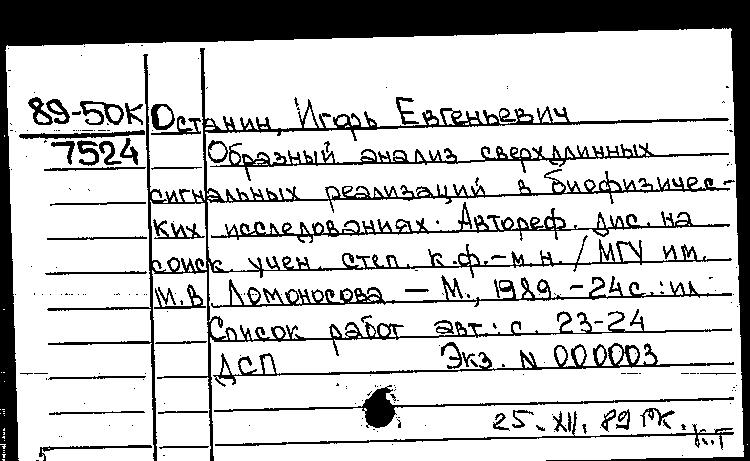 89-50К Останин, Игорь Евгеньевич
7524 Образный анализ сверхдлинных
сигнальных реализаций в биофизичес-
ких исследованиях. Автореф. дис. на
соиск. учен. степ. к.ф.-м.н. / МГУ им.
М.В. Ломоносова. — М., 1989. - 24 с. : ил.
Список работ авт.: с. 23-24
ДСП Экз. N 000003
25. XII. 89 РК.
К.Г